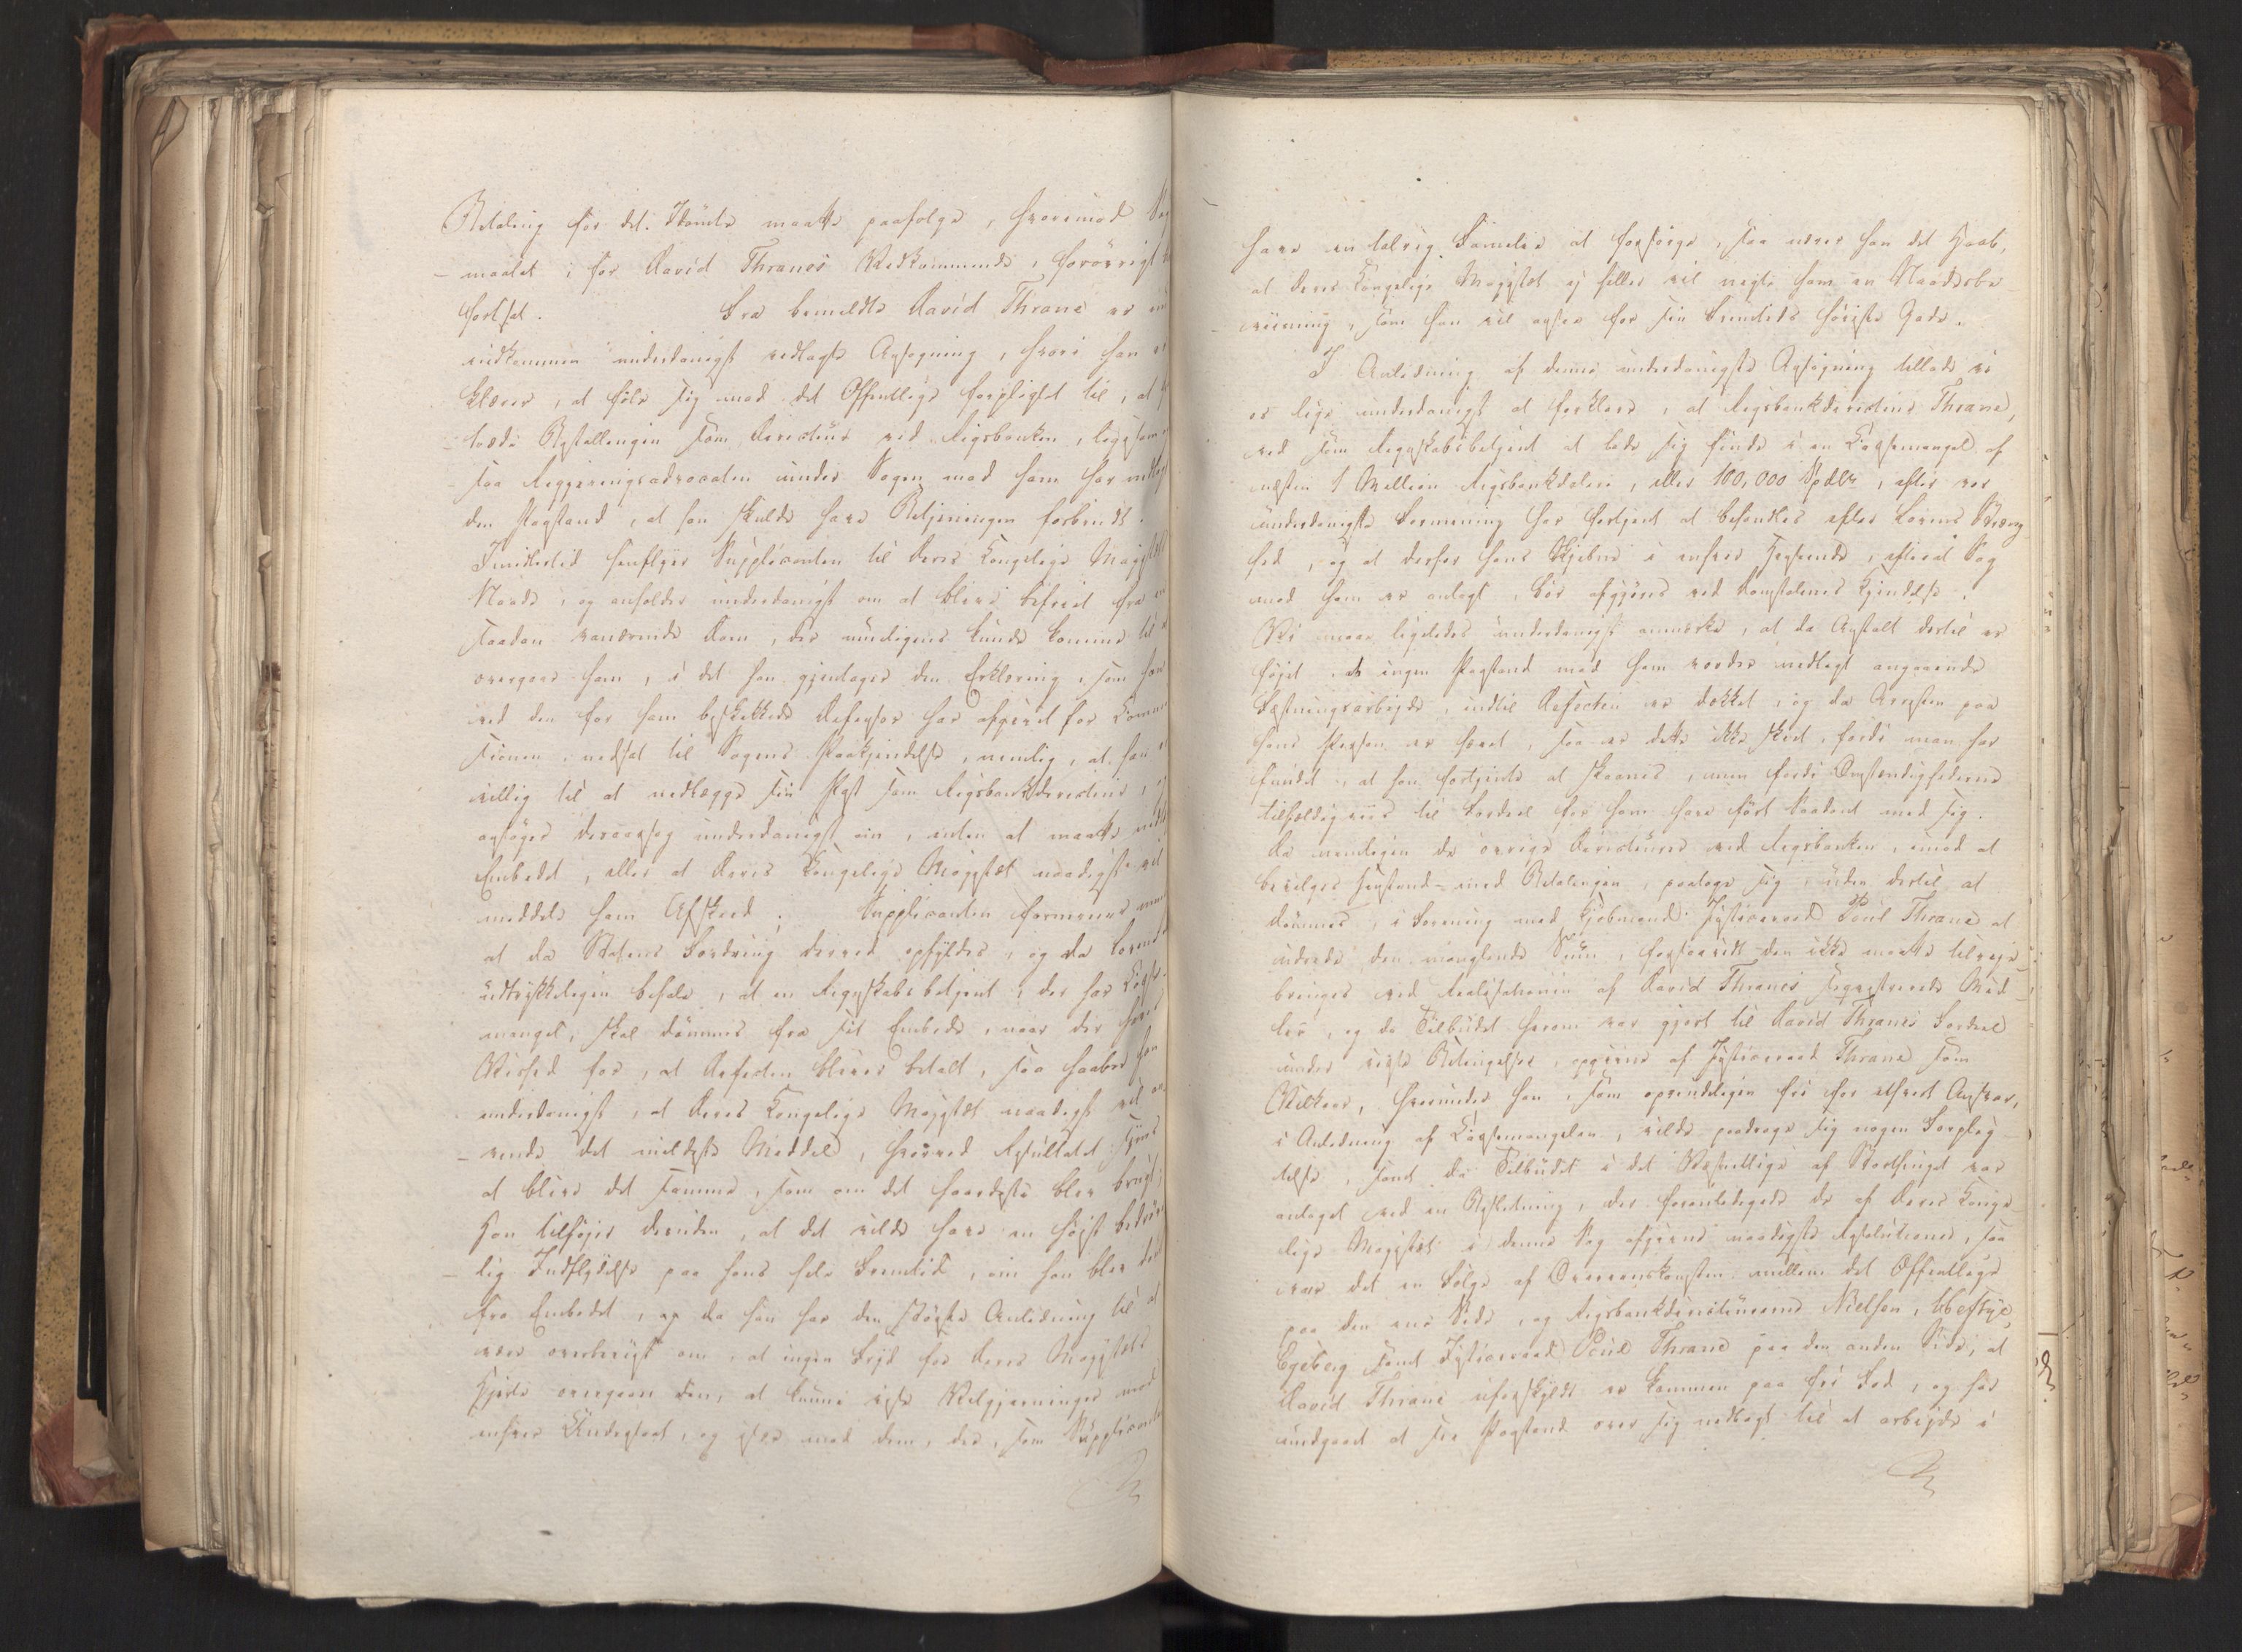 Betaling for det Idømte maatte paafølge, hvorimod Sags
-maalet, for David Thranes Vedkommende, forøvrigt
fortsat. Fra bemeldte David Thrane er
indkommen underdanigst vedlagte Ansøgning, hvori han er
klærer, at føle sig mod det Offentlige forpligtet til, at
-træde Bestillingen som Directeur ved Rigsbanken, ligesom
saa Regjeringsadvocaten under Sagen mod ham har nedlagt
den Paastand, at han skulde have Betjeningen forbrudt.
Imidlertid henflyer Supplicanten til Deres Kongelige Majestæts
Naade, og anholder underdanigst om at blive befriet fra en
saadan vanærende Dom, der muligens kunde komme til at
overgaae ham, i det han gjentager den Erklæring, som han
ved den for ham beskikkede Defensor har afgivet for Commis
sionen nedsat til Sagens Paakjendelse, nemlig, at han er
villig til at nedlægge sin Post som Rigsbankdirecteur, og
ansøger derovorfor underdanigst om, enten at maatte nedlægge
Embedet, eller at Deres Kongelige Majestæt naadigst vil
meddele ham Afsked. Supplicanten formener
at da Statens Fordring derved opfyldes, og da Loven ei
udtrykkeligen befaler, at en Regnskabsbetjent, der har Kasse-
mangel, skal dømmes fra sit Embede, naar der haves
Vished for, at Defecten bliver betalt, saa haaber han
underdanigst, at Deres Kongelige Majestæt naadigst vil an
-vende det mildeste Middel, hvorved Resultatet synes
at blive det samme, som om det haardeste blev brugt;
Han tilføier desuden, at det vilde have en høist bedrøve
-lig Indflydelse paa hans hele Fremtid, om han blev dømt
fra Embedet, og da han har den største Anledning til at
være overbeviist om, at ingen Fryd for Deres Majestæts
Hjerte overgaaer den, at kunne vise Velgjerninger mod
enhver Undersaat, og især mod dem, der, som Supplicanten
have en talrig Familie at forsørge, saa nærer han det Haab,
at Deres Kongelige Majestæt ei heller vil negte ham en Naadesbe
-viisning, som han vil ansee for sin Fremtids høieste Gode.
I Anledning af denne underdanigste Ansøgning tillade vi
os lige underdanigst at forklare, at Rigsbankdirecteur Thrane,
ved som Regnskabsbetjent at lade sig finde i en Kassemangel af
næsten 1 Million Rigsbankdaler, eller 100,000 Spdlr, efter vor
underdanigste Formening har fortjent at behandles efter Lovens Stræng
hed, og at derfor hans Skjebne i enhver Henseende, efterat Sag
mod ham er anlagt, bør afgjøres ved Domstolenes Kjendelse.
Vi maae ligeledes underdanigst anmærke, at da Anstalt dertil er
føiet, at ingen Paastand mod ham vorder nedlagt angaaende
Fæstningsarbeide, indtil Defecten er dækket, og da Arresten paa
hans Person er hævet, saa er dette ikke skeet, fordi man har
fundet, at han fortjente at skaanes, men fordi Omstændighederne
tilfældigviis til Fordeel for ham have ført saadant med sig.
Da nemligen de øvrige Directeurer ved Rigsbanken, imod at
bevilges Henstand med Betalingen, paatoge sig, uden dertil at
dømmes, i Forening med Kjøbmand Justiceraad Poul Thrane at
udrede den manglende Sum, forsaavidt den ikke maatte tilveie
bringes ved Realisationen af David Thranes seqvestrerede Mid-
ler, og da Tilbudet herom var gjort til David Thranes Fordeel
under visse Betingelser, opgivne af Justiceraad Thrane som
Vilkaar, hvorunder han, som oprindeligen fri for ethvert Ansvar,
i Anledning af Kassemangelen, vilde paadrage sig nogen Forplig-
telse, samt da Tilbudet i det Væsentlige af Storthinget var
antaget ved en Beslutning, der foranledigede de af Deres Konge-
lige Majestæt i denne Sag afgivne naadigste Resolutioner, saa
var det en Følge af Overeenskomsten mellem det Offentlige
paa den ene Side, og Rigsbankdirecteurerne Nielsen,
Egeberg samt Justiceraad Poul Thrane paa den anden Side, at
David Thrane uforskyldt er kommen paa fri Fod, og har
undgaaet at see Paastand over sig nedlagt til at arbeide i